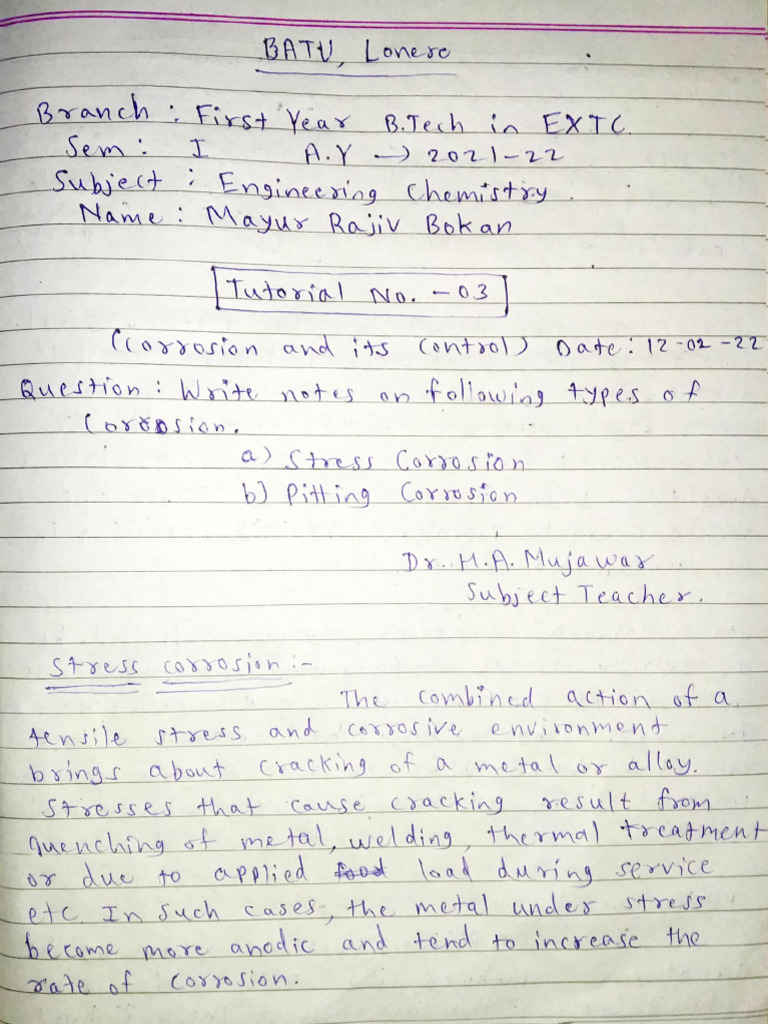 BATU, Lonere
Branch : First Year B.Tech in EXTC.
Sem : I A.Y → 2021-22
Subject : Engineering Chemistry.
Name : Mayur Rajiv Bokan
Tutorial No. - 03
(Corrosion and its control) Date : 12-02-22
Question : Write notes on following types of
Corrosion.
a) Stress Corrosion
b) Pitting Corrosion
Dr. H.A. Mujawar
Subject Teacher.
Stress corrosion :-
The combined action of a
tensile stress and corrosive environment
brings about cracking of a metal or alloy.
Stresses that cause cracking result from
quenching of metal, welding, thermal treatment
or due to applied load during service
etc. In such cases, the metal under stress
become more anodic and tend to increase the
rate of corrosion.